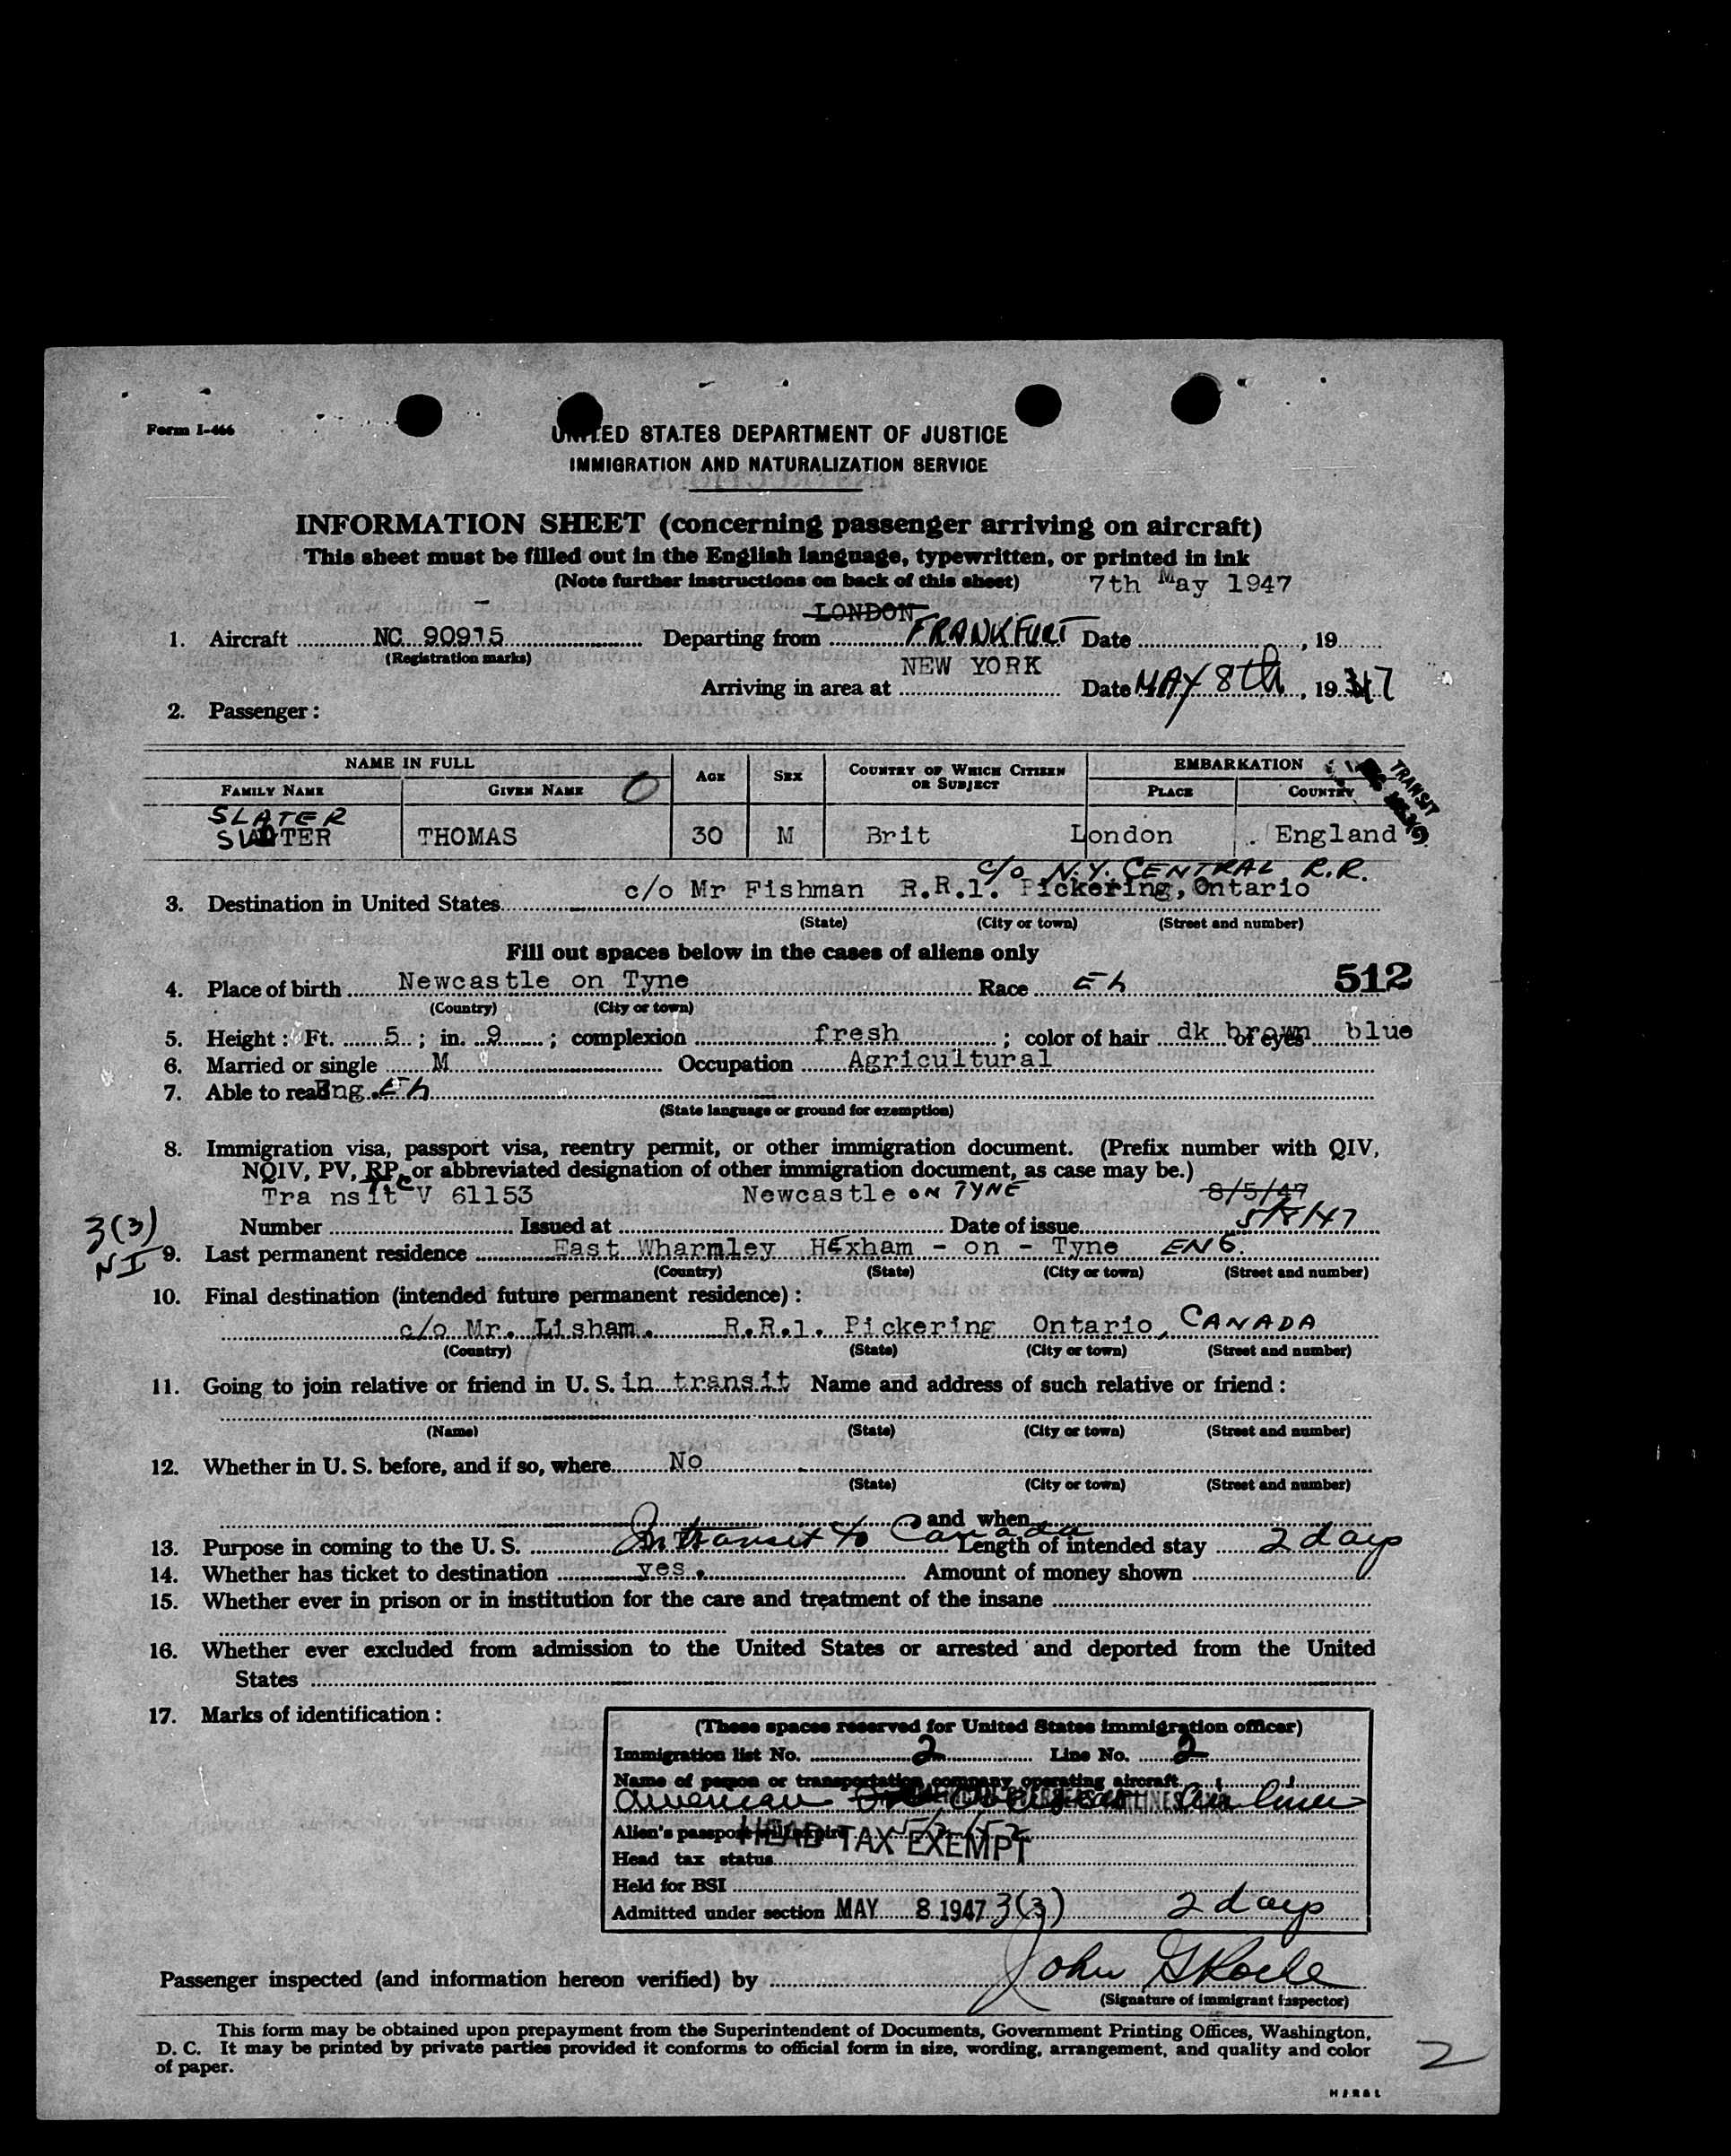 Form I-466
UNITED STATES DEPARTMENT OF JUSTICE
IMMIGRATION AND NATURALIZATION SERVICE
INFORMATION SHEET (concerning passenger arriving on aircraft)
This sheet must be filled out in the English language, typewritten, or printed in ink
(Note further instructions on back of this sheet) 7th May 1947
LONDON
1. Aircraft NC 90915 Departing from FRANKFURT Date , 19
(Registration marks) NEW YORK
Arriving in area at Date MAY 8th, 1947
2. Passenger:
NAME IN FULL AGE SEX COUNTRY OF WHICH CITIZEN OR SUBJECT EMBARKATION TRANSIT
FAMILY NAME GIVEN NAME O PLACE COUNTRY
SLATER
THOMAS 30 M Brit London . England
c/o N.Y. CENTRAL R.R.
c/o Mr Fishman R.R.1. Pickering, Ontario
3. Destination in United States
(State) (City or town) (Street and number)
Fill out spaces below in the cases of aliens only
512
4. Place of birth Newcastle on Tyne Race Eh
(Country) (City or town)
5. Height: Ft. 5 ; in. 9 ; complexion fresh ; color of hair dk brown of eyes blue
6. Married or single M Occupation Agricultural
7. Able to read Eng. Eh
(State language or ground for exemption)
8. Immigration visa, passport visa, reentry permit, or other immigration document. (Prefix number with QIV,
NQIV, PV, RP, or abbreviated designation of other immigration document, as case may be.)
Tra nsit V 61153 Newcastle ON TYNE 8/5/47
Number Issued at Date of issue 5/8/47
3(3)
NI
9. Last permanent residence East Wharmley HExham - on - Tyne ENG.
(Country) (State) (City or town) (Street and number)
10. Final destination (intended future permanent residence):
c/o Mr. Lisham. R.R.1. Pickering Ontario, CANADA
(Country) (State) (City or town) (Street and number)
11. Going to join relative or friend in U. S. in transit Name and address of such relative or friend:
(Name) (State) (City or town) (Street and number)
12. Whether in U. S. before, and if so, where No
(State) (City or town) (Street and number)
and when
13. Purpose in coming to the U. S. In transit to Canada Length of intended stay 2 days
14. Whether has ticket to destination yes. Amount of money shown
15. Whether ever in prison or in institution for the care and treatment of the insane
16. Whether ever excluded from admission to the United States or arrested and deported from the United
States
17. Marks of identification:
(These spaces reserved for United States immigration officer)
Immigration list No. 2 Line No. 2
Name of person or transportation company operating aircraft
American Overseas Airlines
Alien's passport will expire
HEAD TAX EXEMPT
Head tax status
Held for BSI
Admitted under section MAY 8 1947 3(3) 2 days
Passenger inspected (and information hereon verified) by John G
(Signature of immigrant inspector)
This form may be obtained upon prepayment from the Superintendent of Documents, Government Printing Offices, Washington,
D. C. It may be printed by private parties provided it conforms to official form in size, wording, arrangement, and quality and color
of paper.
2